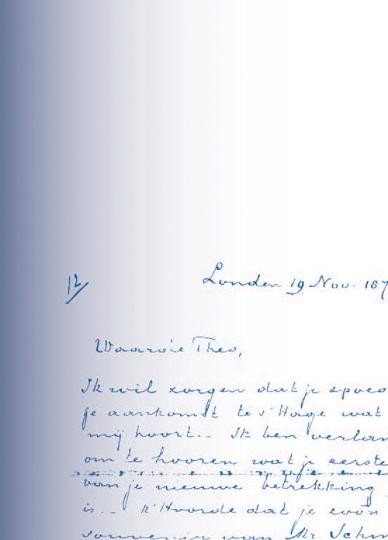 12
Londen 19 Nov. 187
Waarde Theo,
Ik wil zorgen dat je spoed
je aankomst te s'Hage wat
mij hoort.. Ik ben verlan
om te hooren wat je eerste
van je nieuwe betrekking
is.. Ik hoorde dat je
souvenir van Mr Schm